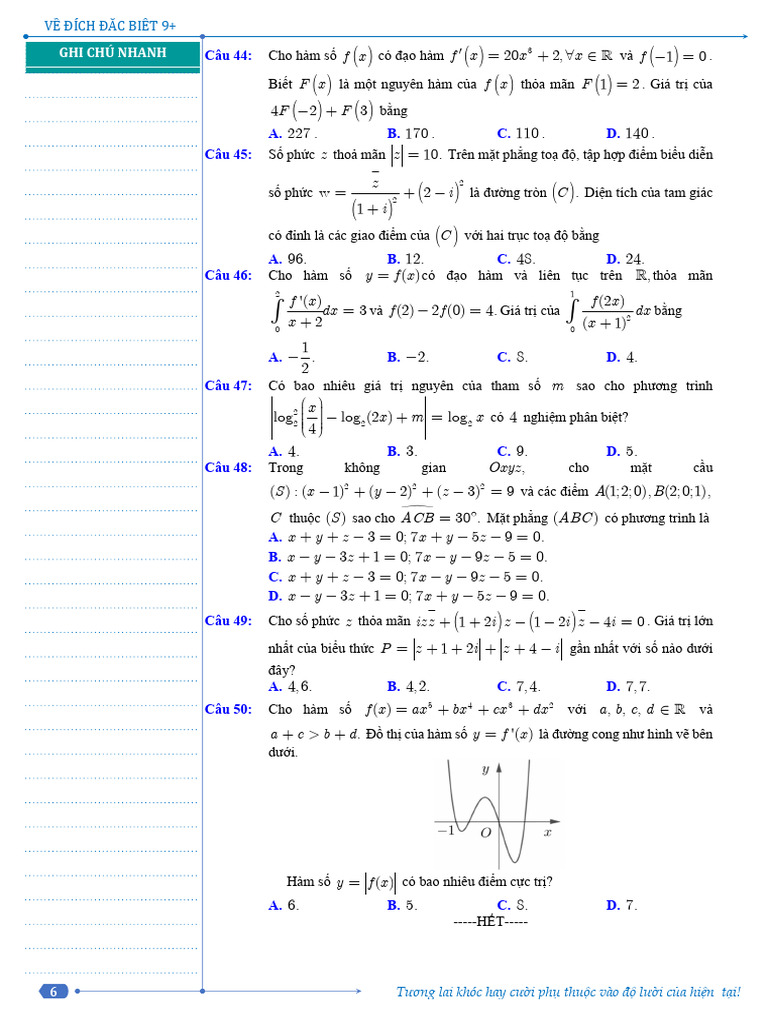 VỀ ĐÍCH ĐẶC BIỆT 9+
GHI CHÚ NHANH
Câu 44: Cho hàm số f(x) có đạo hàm f′(x) = 20x³ + 2, ∀x ∈ ℝ và f(−1) = 0.
Biết F(x) là một nguyên hàm của f(x) thỏa mãn F(1) = 2. Giá trị của
4F(−2) + F(3) bằng
A. 227. B. 170. C. 110. D. 140.
Câu 45: Số phức z thoả mãn |z| = 10. Trên mặt phẳng toạ độ, tập hợp điểm biểu diễn
số phức w = z̅/(1 + i)² + (2 − i)² là đường tròn (C). Diện tích của tam giác
có đỉnh là các giao điểm của (C) với hai trục toạ độ bằng
A. 96. B. 12. C. 48. D. 24.
Câu 46: Cho hàm số y = f(x) có đạo hàm và liên tục trên ℝ, thỏa mãn
∫₀² f'(x)/(x + 2) dx = 3 và f(2) − 2f(0) = 4. Giá trị của ∫₀¹ f(2x)/(x + 1)² dx bằng
A. −1/2. B. −2. C. 8. D. 4.
Câu 47: Có bao nhiêu giá trị nguyên của tham số m sao cho phương trình
|log₂²(x/4) − log₂(2x) + m| = log₂ x có 4 nghiệm phân biệt?
A. 4. B. 3. C. 9. D. 5.
Câu 48: Trong không gian Oxyz, cho mặt cầu
(S) : (x − 1)² + (y − 2)² + (z − 3)² = 9 và các điểm A(1;2;0), B(2;0;1),
C thuộc (S) sao cho ACB = 30°. Mặt phẳng (ABC) có phương trình là
A. x + y + z − 3 = 0; 7x + y − 5z − 9 = 0.
B. x − y − 3z + 1 = 0; 7x − y − 9z − 5 = 0.
C. x + y + z − 3 = 0; 7x − y − 9z − 5 = 0.
D. x − y − 3z + 1 = 0; 7x + y − 5z − 9 = 0.
Câu 49: Cho số phức z thỏa mãn izz̅ + (1 + 2i)z − (1 − 2i)z̅ − 4i = 0. Giá trị lớn
nhất của biểu thức P = |z + 1 + 2i| + |z + 4 − i| gần nhất với số nào dưới
đây?
A. 4,6. B. 4,2. C. 7,4. D. 7,7.
Câu 50: Cho hàm số f(x) = ax⁵ + bx⁴ + cx³ + dx² với a, b, c, d ∈ ℝ và
a + c > b + d. Đồ thị của hàm số y = f'(x) là đường cong như hình vẽ bên
dưới.
y
−1 O x
Hàm số y = |f(x)| có bao nhiêu điểm cực trị?
A. 6. B. 5. C. 8. D. 7.
-----HẾT-----
6 Tương lai khóc hay cười phụ thuộc vào độ lười của hiện tại!